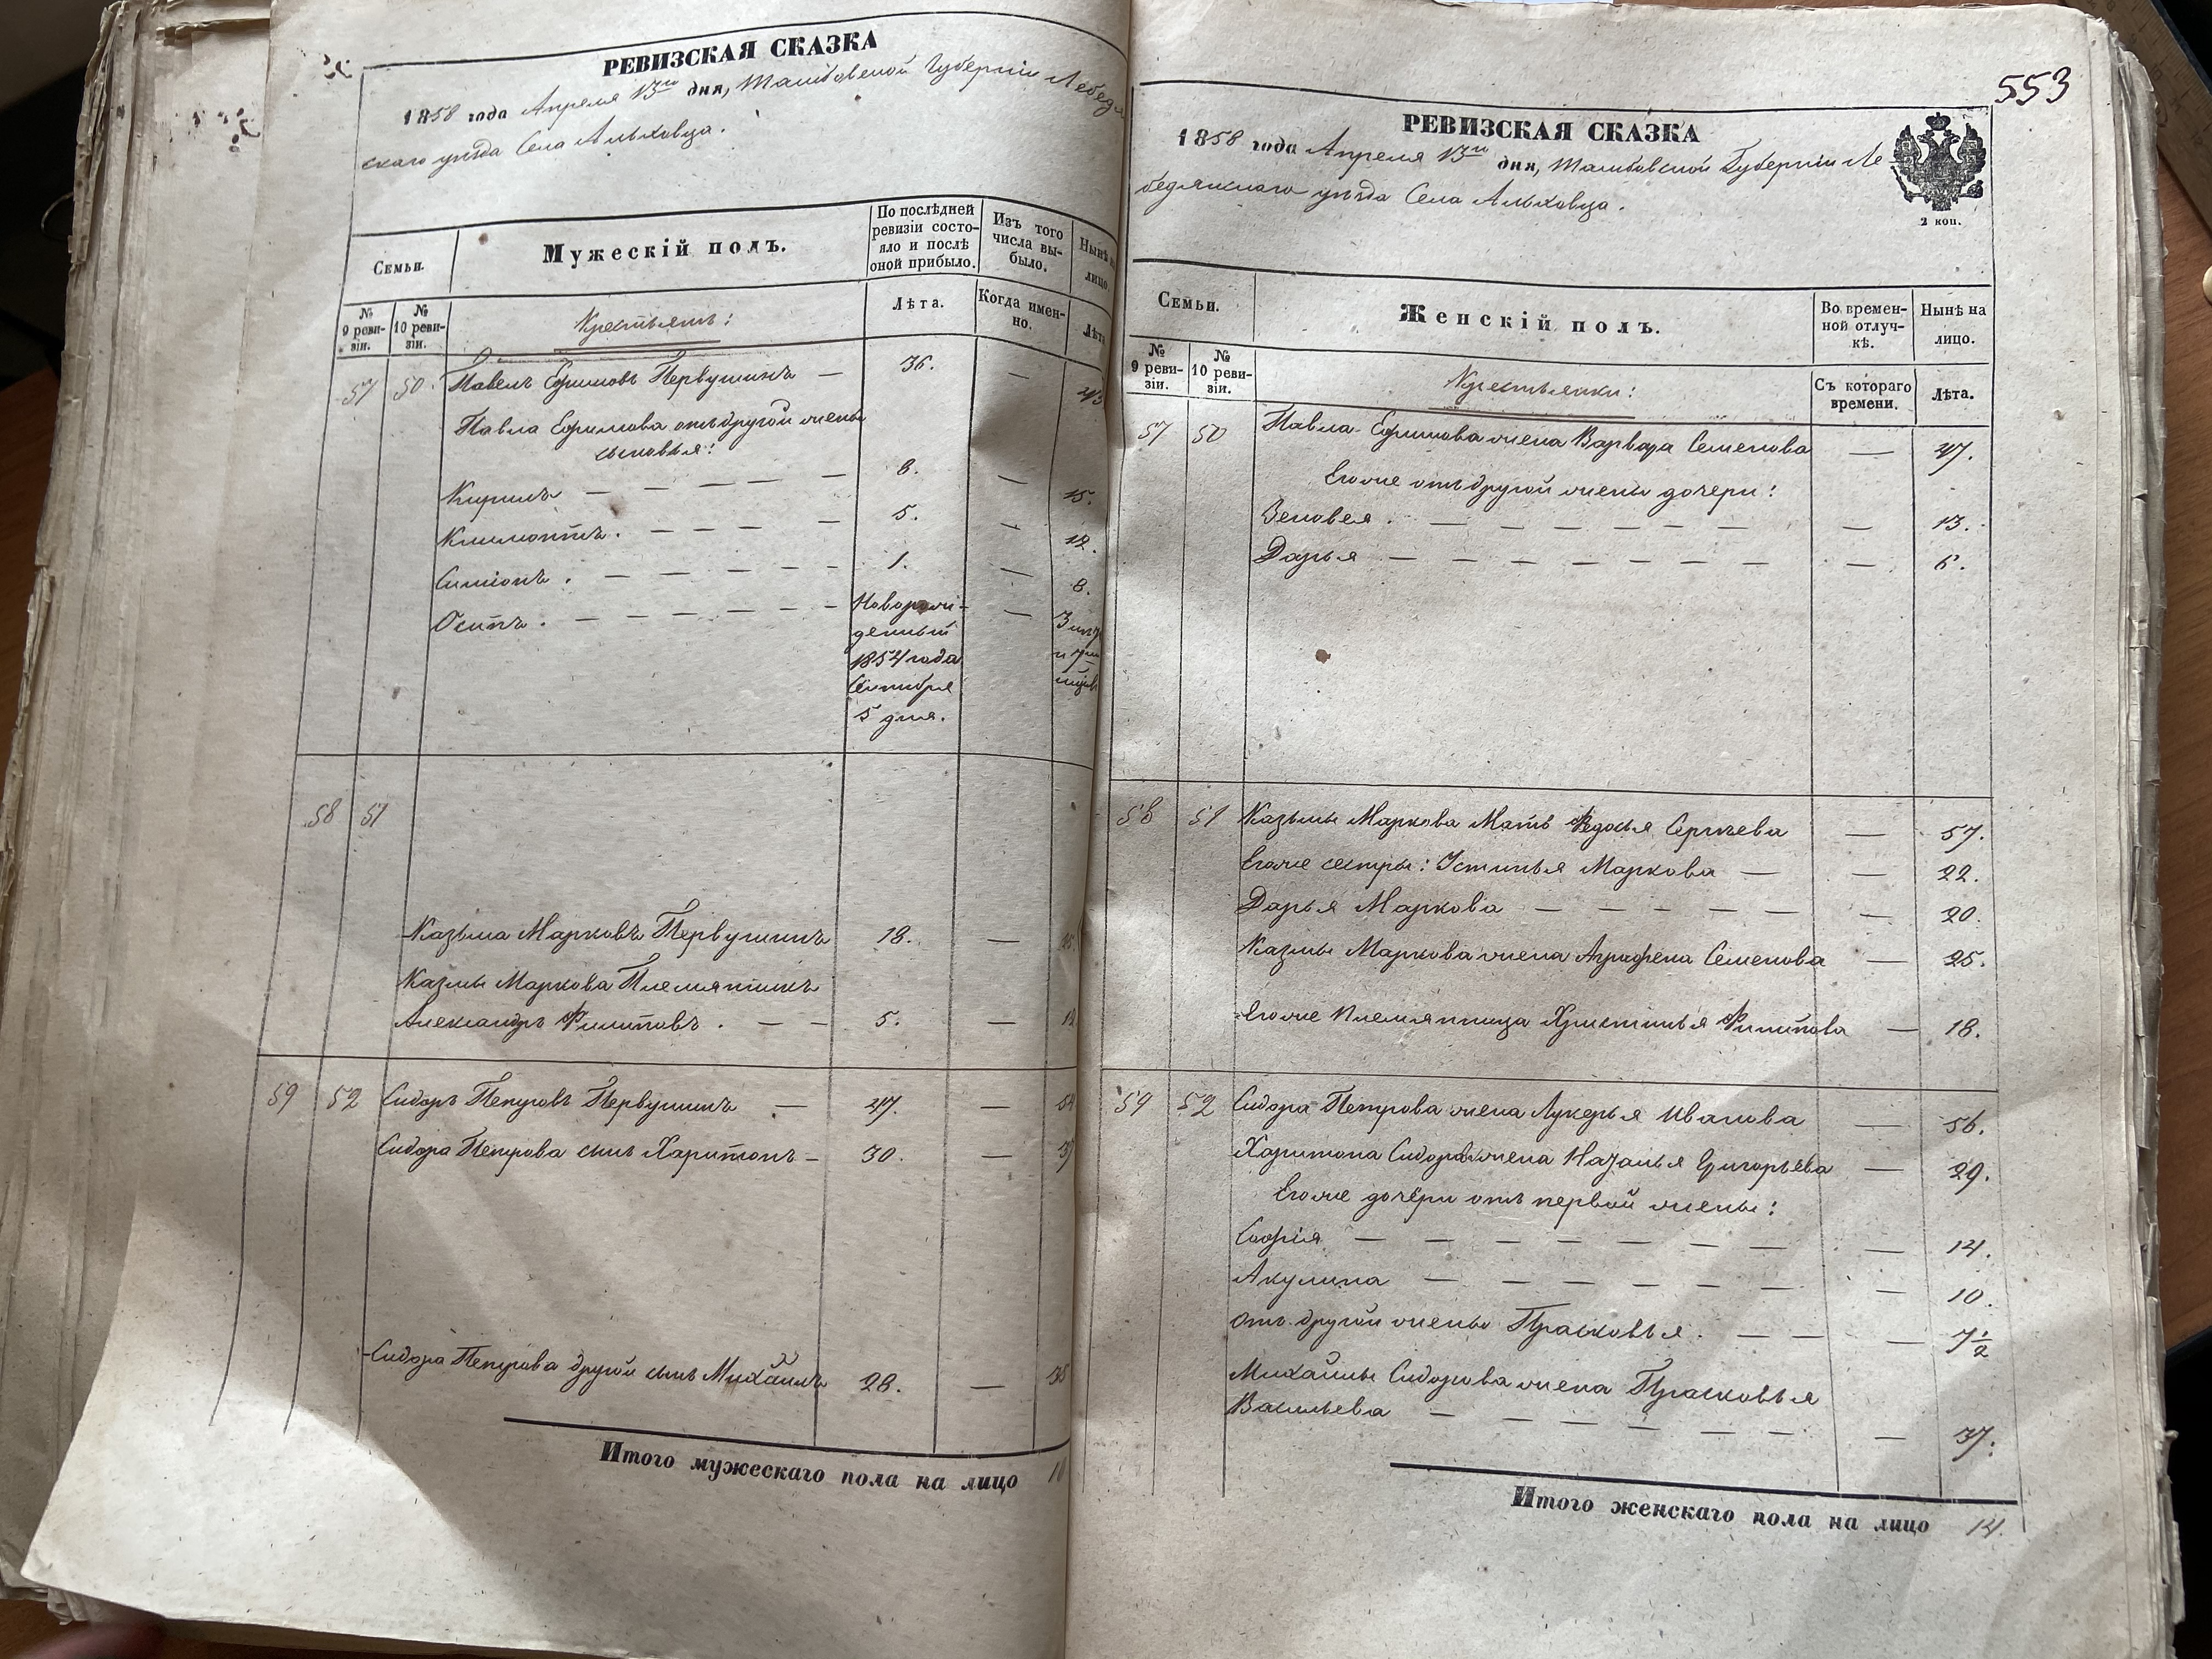 РЕВИЗСКАЯ СКАЗКА
1858 года Апреля 13го дня, Тамбовской Губернiи Лебедян
скаго уѣзда Села Альховца.
Семьи.
Мужескiй полъ.
По послѣдней
ревизiи состо-
яло и послѣ
оной прибыло.
Изъ того
числа вы-
было.
Нынѣ
лицо.
№
9 реви-
зiи.
№
10 реви-
зiи.
Крестьянъ:
Лѣта.
Когда имен-
но.
Лѣта
57 50 Павелъ Ефимовъ Первушинъ — 36. — 43
Павла Ефимова отъ другой жены
сыновья:
Кирилъ — — — — — 8. — 15.
Климонтъ. — — — — 5. — 12.
Симiонъ. — — — — — 1. — 8.
Осипъ. — — — — — Новорож- — 3
денный
1854 года
Сентября
5 дня.
58 51
Казьма Марковъ Первушинъ 18. — 25
Казмы Маркова Племянникъ
Александръ Филиповъ. — — 5. — 12
59 52 Сидоръ Петровъ Первушинъ. — 47. — 54
Сидора Петрова сынъ Харитонъ — 30. — 37
Сидора Петрова другой сынъ Михайлъ 28. — 35
Итого мужескаго пола на лицо 10
553
РЕВИЗСКАЯ СКАЗКА
1858 года Апреля 13го дня, Тамбовской Губернiи Ле-
бедянскаго уѣзда Села Альховца.
2 коп.
Семьи.
Женскiй полъ.
Во времен-
ной отлуч-
кѣ.
Нынѣ на
лицо.
№
9 реви-
зiи.
№
10 реви-
зiи.
Крестьянки:
Съ котораго
времени.
Лѣта.
57 50 Павла Ефимова жена Варвара Семенова — 47.
Егоже отъ другой жены дочери:
Зеновея. — — — — — — — 13.
Дарья — — — — — — — 6.
58 51 Казьмы Маркова Мать Федосья Сергѣева — 57.
Егоже сестры: Устинья Маркова — — 22.
Дарья Маркова — — — — — — 20.
Казмы Маркова жена Аграфена Семенова — 25.
Егоже Племянница Христинья Филипова — 18.
59 52 Сидора Петрова жена Лукерья Иванова — 56.
Харитона Сидорова жена Наталья Григорьева — 29.
Егоже дочери отъ первой жены:
Софiя — — — — — — — — 14.
Акулина — — — — — — 10.
отъ другой жены Прасковья. — — — 7½
Михайлы Сидорова жена Прасковья
Васильева — — — — — — 37.
Итого женскаго пола на лицо 14.